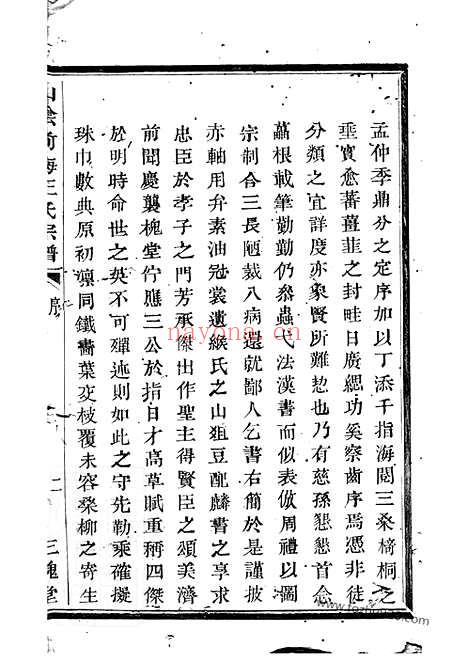 孟仲季鼎分之定序加以丁添千指海閱三桑椅桐之
垂實愈蕃薑韭之封畦日廣緦功奚察齒序焉憑非徒
分類之宜詳度亦象賢所難恝也乃有慈孫懇懇首念
蕭根載筆勤勤仍叅蟲弋法漢書而似表倣周禮以圖
宗制合三長陋裁八病遠就鄙人乞書右簡於是謹披
赤軸用弁素油冠裳遺緱氏之山狙豆配麟書之享求
忠臣於孝子之門芳承傑出作聖主得賢臣之頌美濟
前聞慶襲槐堂佇應三公於指日才高草賦重稱四傑
於明時命世之英不可殫述則如此之守先勒乘確擬
珠巾數典原初凜同鐵嗇葉交枝覆未容桑柳之寄生
山陰前梅王氏宗譜
序
二
三槐堂
nayona.cn